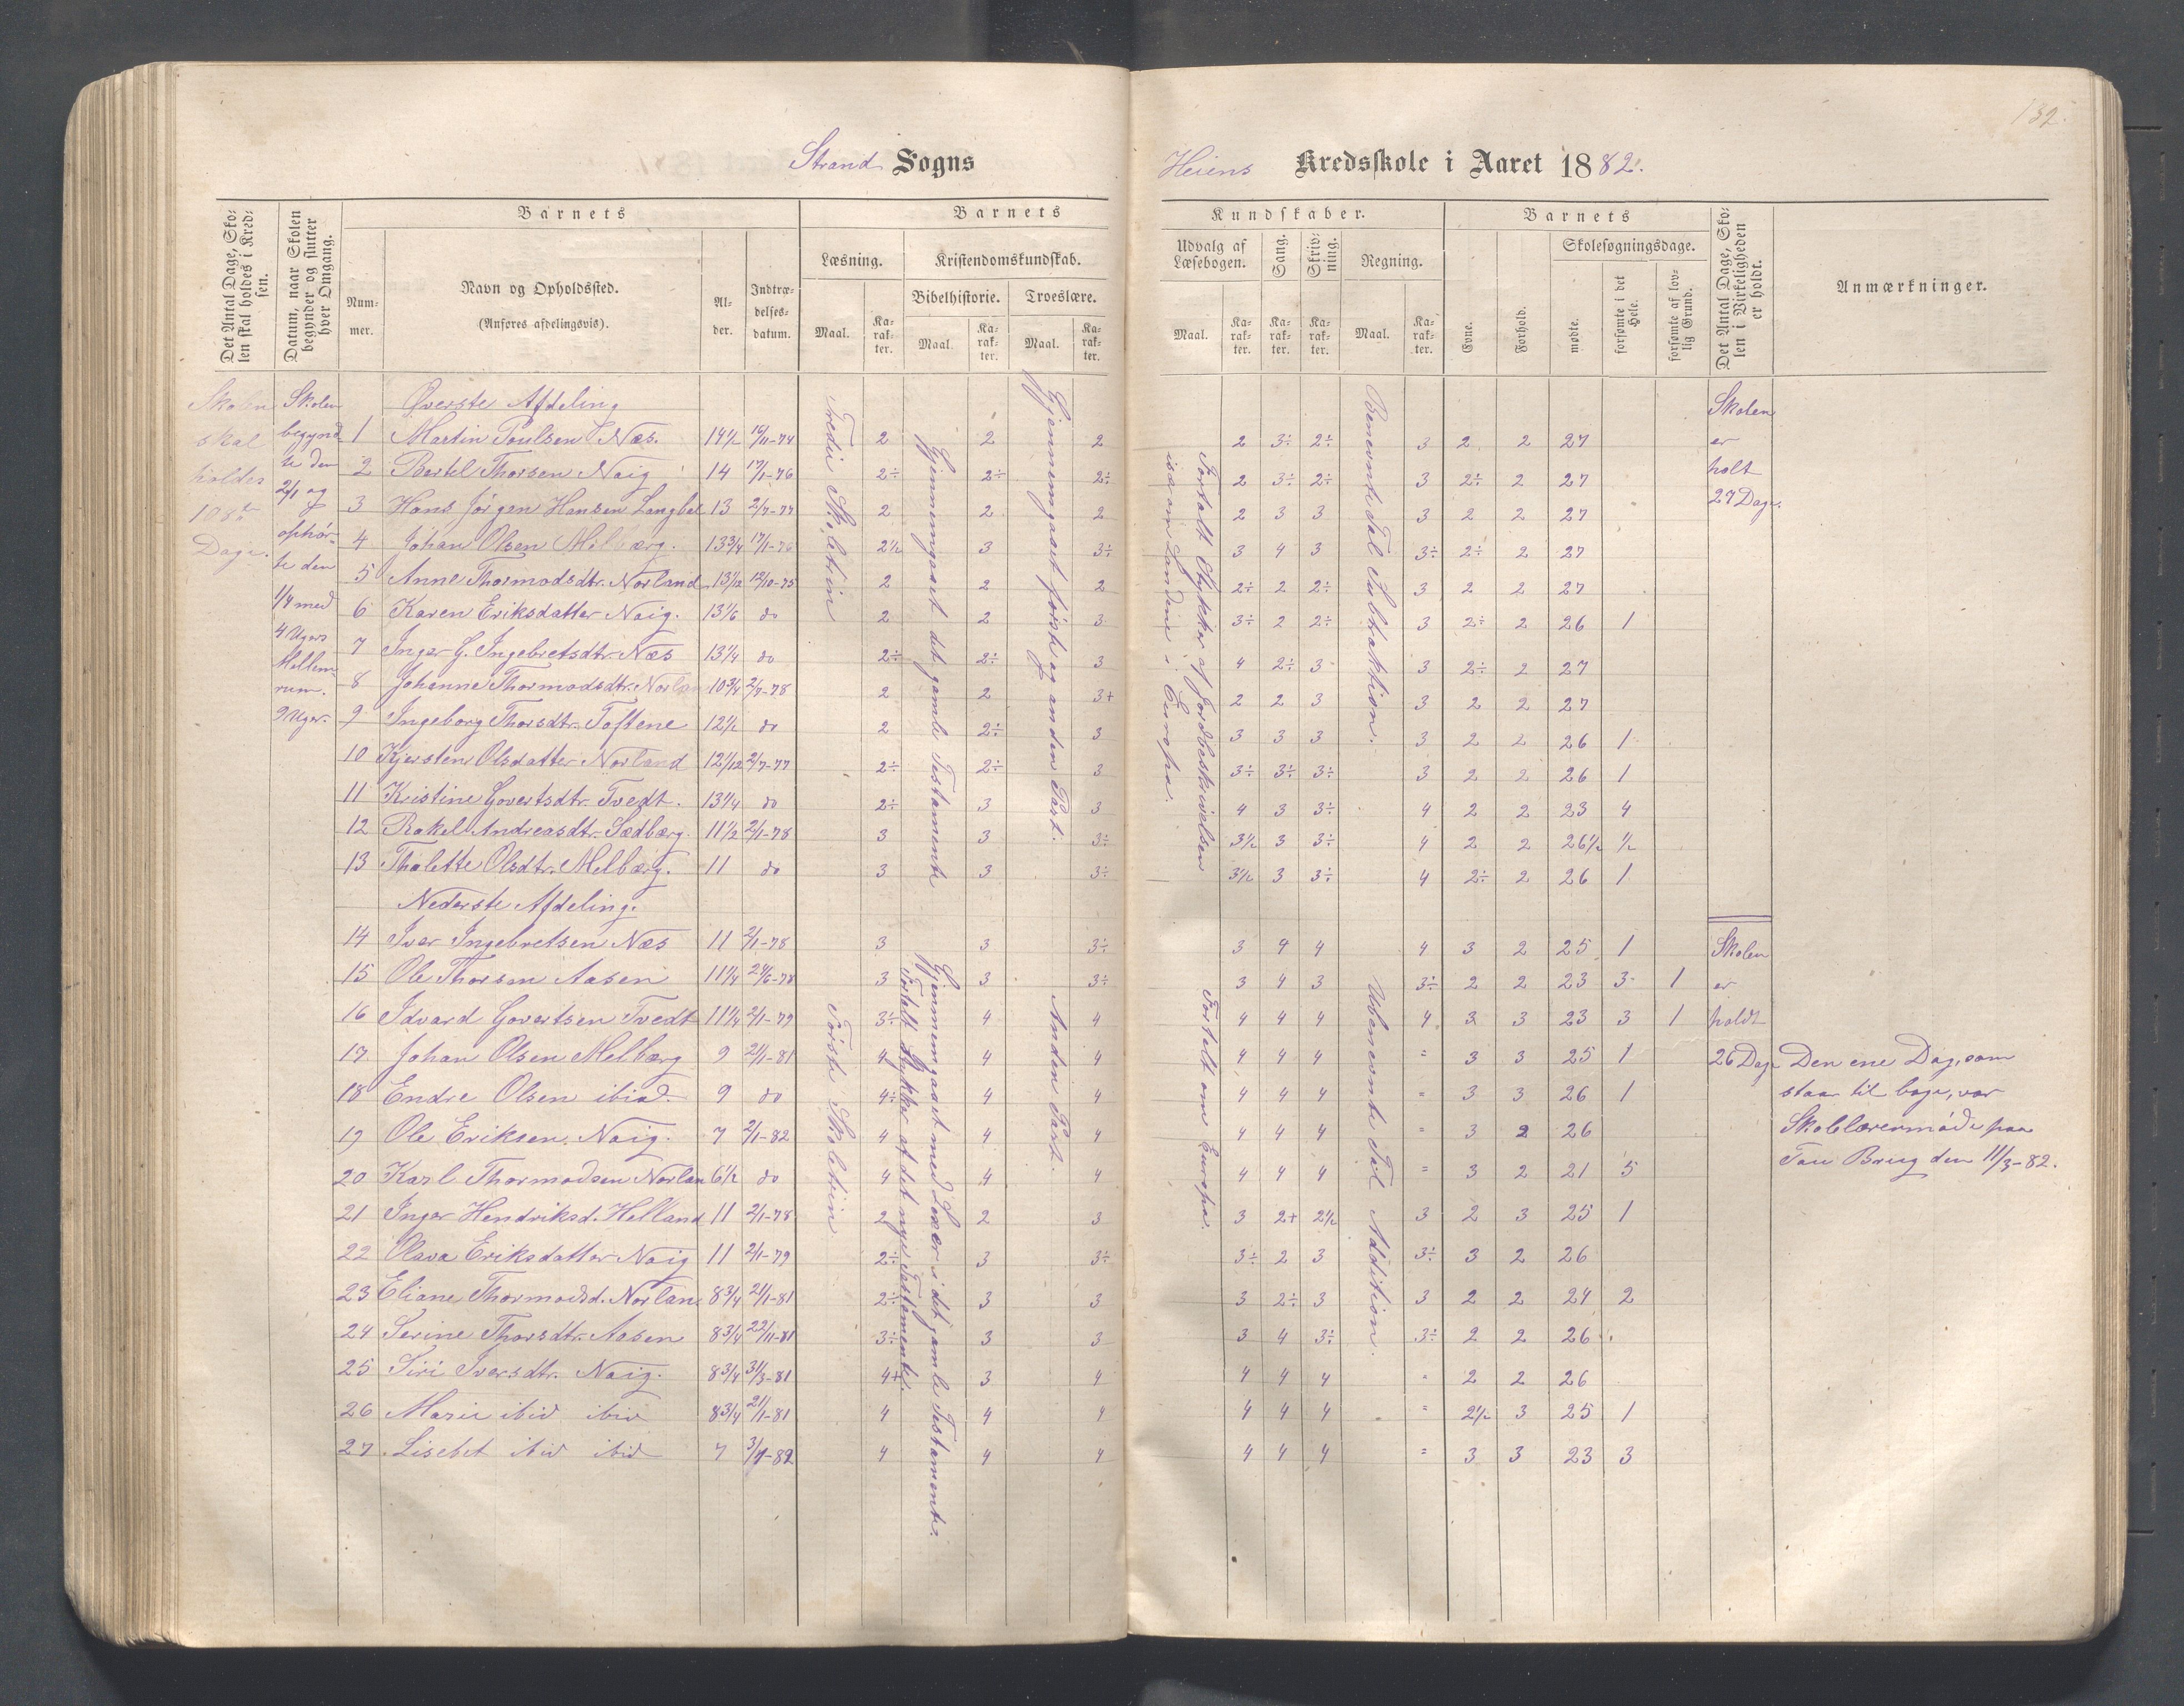 132.
Strand Sogns
Heiens Kredsskole i Aaret 1882.
Det Antal Dage, Sko-
len skal holdes i Kred-
sen.
Datum, naar Skolen
begynder og slutter
hver Omgang.
Barnets
Num-
mer.
Navn og Opholdssted.
(Anføres afdelingsvis).
Al-
der.
Indtræ-
delses-
datum.
Barnets
Læsning.
Maal.
Ka-
rak-
ter.
Kristendomskundskab.
Bibelhistorie.
Maal.
Ka-
rak-
ter.
Troeslære.
Maal.
Ka-
rak-
ter.
Kundskaber.
Udvalg af
Læsebogen.
Maal.
Ka-
rak-
ter.
Sang.
Ka-
rak-
ter.
Skriv-
ning.
Ka-
rak-
ter.
Regning.
Maal.
Ka-
rak-
ter.
Barnets
Evne.
Forhold.
Skolesøgningsdage.
mødte.
forsømte i det
Hele.
forsømte af lov-
lig Grund.
Det Antal Dage, Sko-
len i Virkeligheden
er holdt.
Anmærkninger.
Skolen
skal
holdes
108
Dage.
Skolen
begynd-
te den
2/1 og
ophør-
te den
1/4 med
4 Ugers
Mellem-
rum.
9 Uger.
Øverste Afdeling
1 Martin Poulsen Næs. 14½ 16/11-74 2 2 2 2 3÷ 2÷ 3 2 2 27
2 Bertel Thorsen Naig 14 17/1-76 2÷ 2÷ 2÷ 2 3÷ 2÷ 3 2÷ 2 27
3 Hans Jørgen Hansen 13 2/7-77 2 2 2 2 3 3 3 2 2 27
4 Johan Olsen Melbærg. 13¾ 17/1-76 2½ 3 3÷ 3 4 3 3÷ 2÷ 2 27
5 Anne Thormodsdtr. Norland 13 1/12 12/10-75 2 2 2 2÷ 2 2÷ 3 2 2 27
6 Karen Eriksdatter Naig. 13 1/6 do 2 2 3 3÷ 2 2÷ 3 2÷ 2 26 1
7 Inger G. Ingebretsdtr. Næs 13¼ do 2÷ 2÷ 3 4 2÷ 3 3 2÷ 2 27
8 Johanne Thormodsdtr. Norlan 10¾ 2/7-78 2 2 3+ 2 2 3 3 2 2 27
9 Ingeborg Thorsdtr. Toftene 12½ do 2 2÷ 3 3 3 3 3 2 2 26 1
10 Kjersten Olsdatter Norland 12 1/12 2/7-77 2÷ 2÷ 3 3÷ 3÷ 3÷ 3 2 2 26 1
11 Kristine Govertsdtr. Tvedt. 13¼ do 2÷ 3 3 4 3 3÷ 4 2 2 23 4
12 Rakel Andreasdtr. Sædbærg. 11½ 2/1-78 3 3 3÷ 3½ 3 3÷ 4 2 2 26½ ½
13 Thalette Olsdtr. Melbærg. 11 do 3 3 3÷ 3½ 3 3÷ 4 2÷ 2 26 1
Tredie Skoletrin
Gjennemgaaet det gamle Testamente
Gjennemgaaet første og anden Part.
Fortalt Stykker af Jordbeskrivelsen
isæ om Landene i Europa.
Benevnte Tal Subtraktion.
Skolen
er
holt
27 Dage.
Nederste Afdeling.
14 Iver Ingebretsen Næs 11 2/1-78 3 3 3÷ 3 4 4 4 3 2 25 1
15 Ole Thorsen Aasen 11¼ 24/6-78 3 3 3÷ 3 4 3 3÷ 2 2 23 3 1
16 Edvard Govertsen Tvedt 11¼ 2/1-79 3÷ 4 4 4 4 4 4 3 3 23 3 1
17 Johan Olsen Melbærg 9 21/1-81 4 4 4 4 4 4 = 3 3 25 1
18 Endre Olsen ibid. 9 do 4÷ 4 4 4 4 4 = 3 3 26 1
19 Ole Eriksen Naig. 7 2/1-82 4 4 4 4 4 4 = 3 2 26
20 Karl Thormodsen Norlan 6½ do 4 4 4 4 4 4 = 3 2 21 5
21 Inger Hendriksd. Helland 11 2/1-78 2 2 3 3 2+ 2½ 3 2 3 25 1
22 Olava Eriksdatter Naig 11 2/1-79 2÷ 3 3÷ 3÷ 2 3 3÷ 3 2 26
23 Eliane Thormodsd. Norlan 8¾ 21/1-81 2÷ 3 3 3 2÷ 3 3 2 2 24 2
24 Serine Thorsdtr. Aasen 8¾ 22/11-81 3÷ 3 3 3 4 3÷ 3÷ 2 2 26
25 Siri Iversdtr. Naig. 8¾ 31/3-81 4+ 3 4 4 4 4 = 2 2 26
26 Marie ibid ibid 8¾ 21/1-81 4 4 4 4 4 4 = 2½ 3 25 1
27 Lisebet ibid ibid 7 82 4 4 4 4 4 4 = 3 3 23 3
Første Skoletrin
Gjennemgaaet med Lexer i det gamle Testamente.
Fortalt Stykker af det nye Testamentet.
Anden Part.
Fortalt om Europa.
Ubenevnte Tal Addition.
Skolen
er
holdt
26 Dage
Den ene Dag, som
staar til bage, var
Skolelærermøde paa
Tau Brug den 11/3-82.